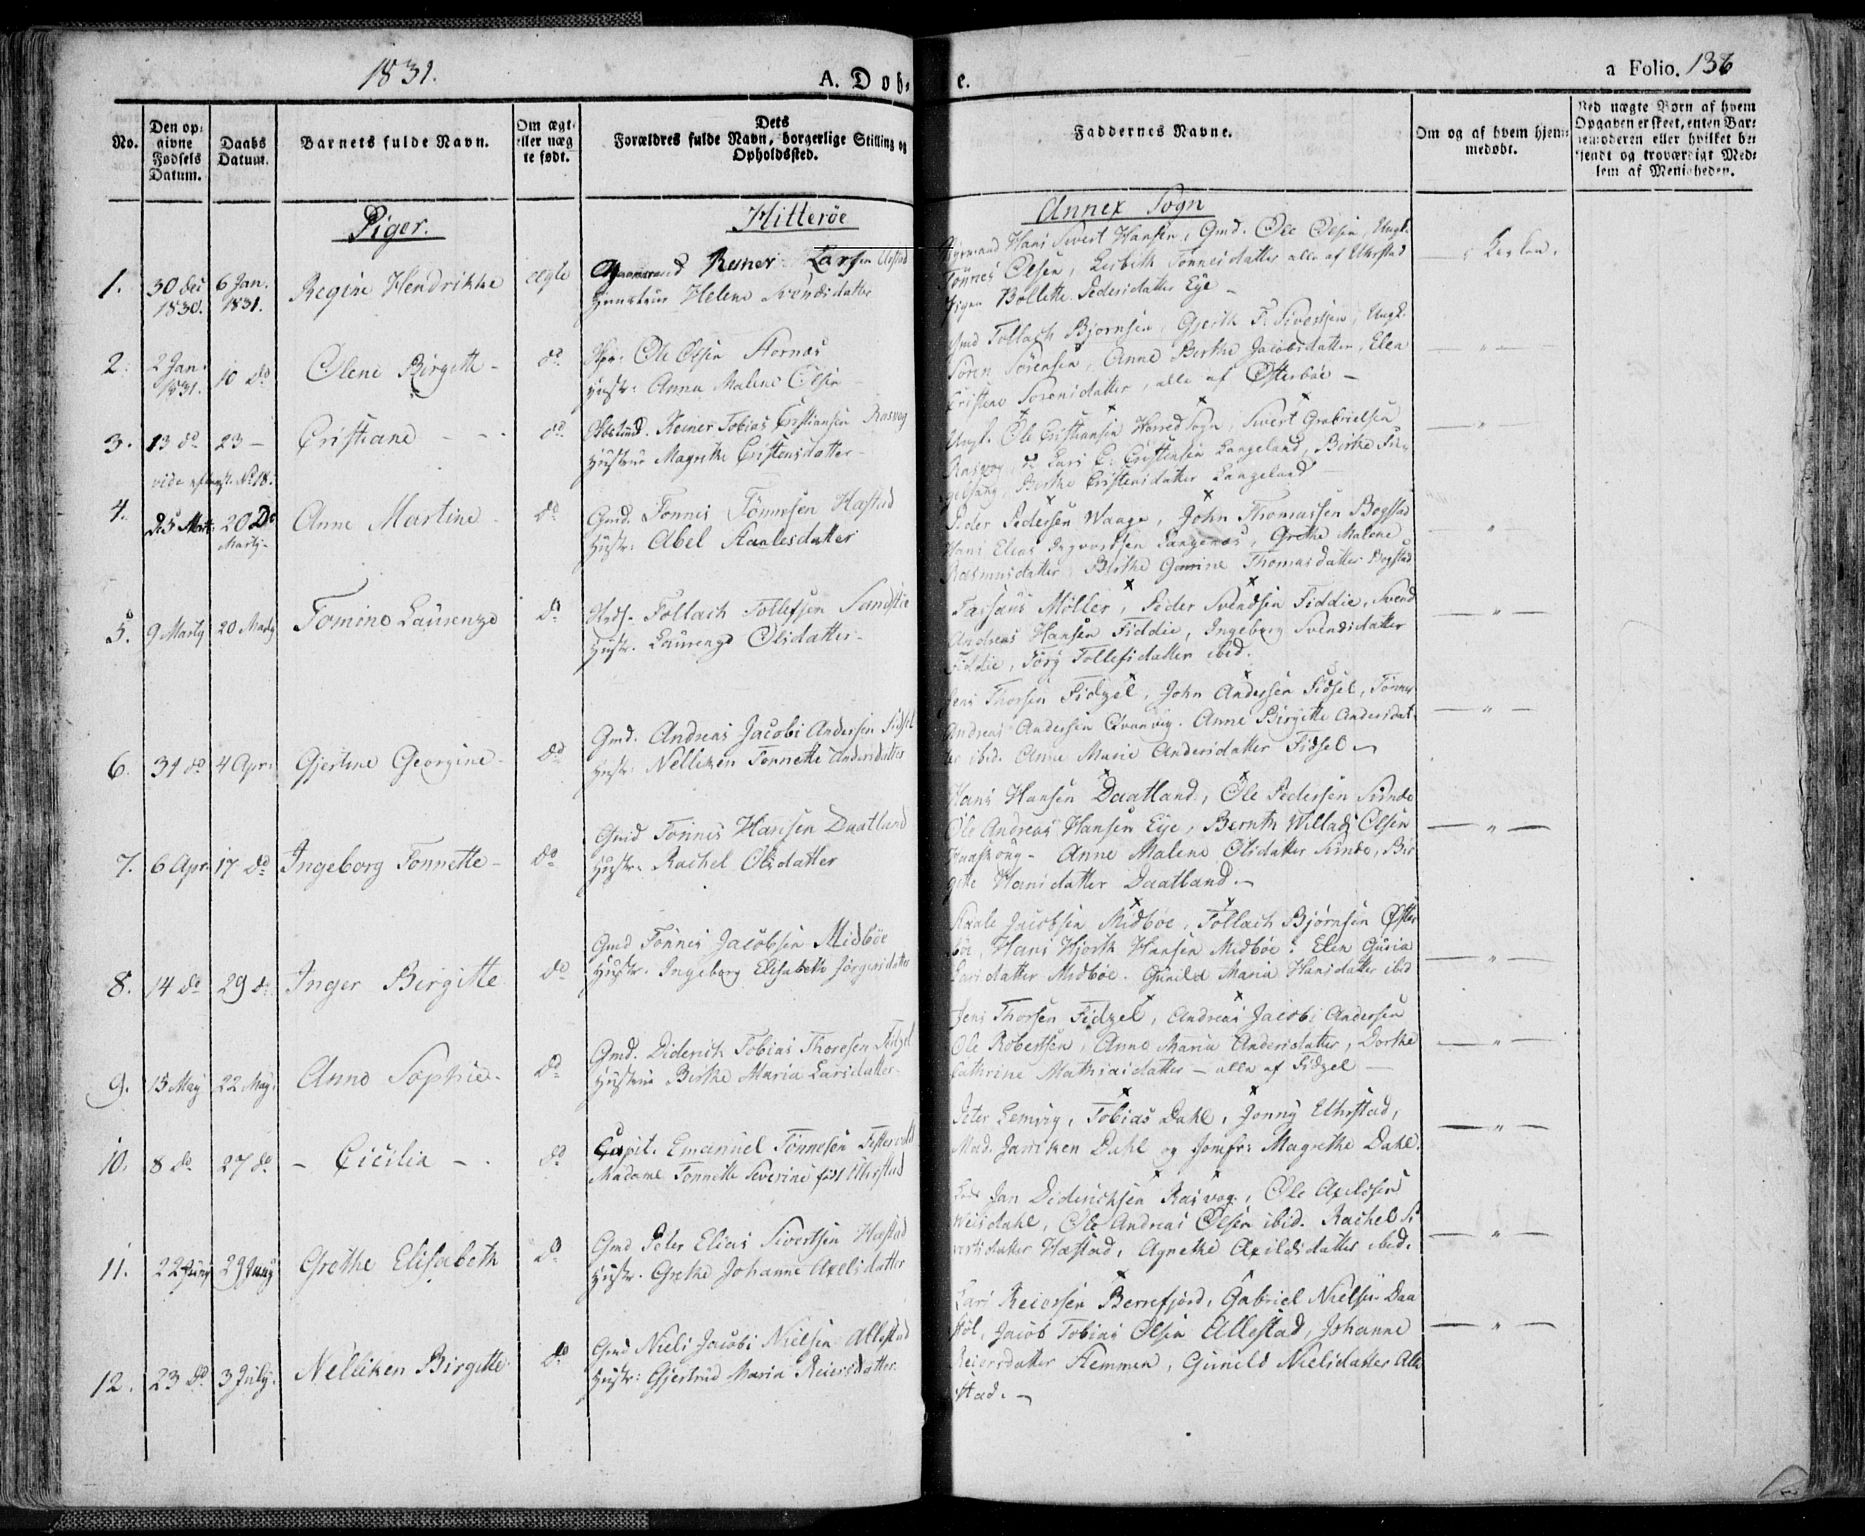 1831.
A. Dob- e.
a Folio. 136
No.
Den op-
givne
Fødsels
Datum.
Daabs
Datum.
Barnets fulde Navn.
Om ægt-
eller næg
te født.
Dets
Forældres fulde Navn, borgerlige Stilling og
Opholdssted.
Faddernes Navne.
Om og af hvem hjem-
medøbt.
Ved uægte Børn af hvem
Opgaven er skeet, enten Bar-
nemoderen eller hvilket be-
kjendt og troværdigt Med-
lem af Menigheden.
Piger.
Hitterøe
Annex Sogn
1.
30 Dec
1830.
6 Jan.
1831.
Regine Hendrikke
ægte
Reiner Larsen
Hustrue Helene Svendsdatter
Hans Sivert Hansen, Gmd. Ole Olsen, Ungk.
Tønnes Olsen, Lisbeth Tønnesdatter alle af
Pigen Bollette Pedersdatter Eye -
2.
2 Jan.
1831.
10 do
Olene Birgitte -
do
Ole Olsen Stornæs
Hustr: Anna Malene Olsen
Gmd Tollach Bjornsen, Gjerth F. Sivertsen, Ungk.
Søren Sørensen, Anne Berthe Jacobsdatter, Elen
Cristene Sorensdatter, alle af Østerbøe -
3.
13 do
23 -
Cristiane - - -
do
Reiner Tobias Cristiansen Rasvog
Hustrue Magrethe Cristensdatter -
Ungk. Ole Cristiansen Herred Sogn, Sivert Gabrielsen
Rasvog, do Lars C. Cristensen Langeland, Berthe
Berthe Cristensdatter Langeland
4.
20 do
Martz -
Anne Martine -
do
Gmd. Tonnes Tönnesen Hæstad
Hustr: Abel Staalesdatter
Peder Pedersen Waage, John Thomassen Bogstad
Hans Elias Langenæs, Grethe Malene
Rasmusdatter, Birthe Thomasdatter Bogstad
5.
9 Marty
20 Marty
Tomine Laurenze
do
Tollach Tollefsen
Hustr. Laurenze Olsdatter -
Møller, Peder Svendsen Fiddie, Svend
Andreas Hansen Fiddie, Ingeborg Svendsdatter
Fiddie, Tollefsdatter ibid.
6.
31 do
4 Apr:
Gjertine Georgine -
do
Gmd. Andreas Jacobi Andersen Fidsel
Hustr: Nelliken Tonnette Andersdatter
Jens Thorsen Fidzel, John Andersen Fidsel, Tønnes
Andreas Andersen. Anne Birgitte Andersdat-
ter ibid. Anne Marie Andersdatter Fidsel -
7.
6 Apr.
17 do
Ingeborg Tonnette -
do
Gmd Tönnes Hansen Daatland
Hustr: Rachel Olsdatter
Hans Hansen Daatland, Ole Pedersen Sunde
Ole Andreas Hansen Eye, Bernth Willads Olsen
- Anne Malene Olsdatter Sunde, Bir
gitte Hansdatter Daatland -
8.
14 do
29 do
Inger Birgitte
do
Gmd Tönnes Jacobsen Midbøe
Hustr. Ingeborg Elisabeth Jörgensdatter
Staale Jacobsen Midbøe, Tollach Bjørnsen Øster
bøe, Hans Hjorth Hansen Midbøe, Elen
Larsdatter Midbøe. Gunild Maria Hansdatter ibid
9.
15 May
22 May.
Anne Sophie -
do
Gmd. Diderich Tobias Thoresen Fidzel
Hustrue Berthe Maria Larsdatter
Jens Thorsen Fidzel, Andreas Jacobi Andersen
Ole Robertsen, Anne Maria Andersdatter, Dorthe
Cathrine Mathiasdatter - alle af Fidzel -
10.
8 do
27 do
- Cicilia - -
do
Capit. Emanuel Tönnesen
Madame Tonnette Severine født
Peter Lemvig, Tobias Dahl, Jonny
Mad. Janiken Dahl og Jomfr: Magrethe Dahl.
11.
22 Juny
29 Juny
Grethe Elisabeth
do
Gmd Peter Elias Sivertsen Hæstad
Hustr. Grethe Johanne Axelsdatter
Jan Diderichsen Rasvog, Ole Axelsen
Ole Andreas Olsen ibid. Rachel Si
vertsdatter Hæstad, Agnethe Axelsdatter ibid.
12.
23 do
3 July.
Nelliken Birgitte
do
Gmd Niels Jacobi Nielsen Allestad
Hustr: Gjertrud Maria Reiersdatter
Lars Reiersen Bernefjord, Gabriel Nielsen
Jacob Tobias Olsen Allestad, Johanne
Reiersdatter Hemmen, Gunild Nielsdatter Alle
stad. -